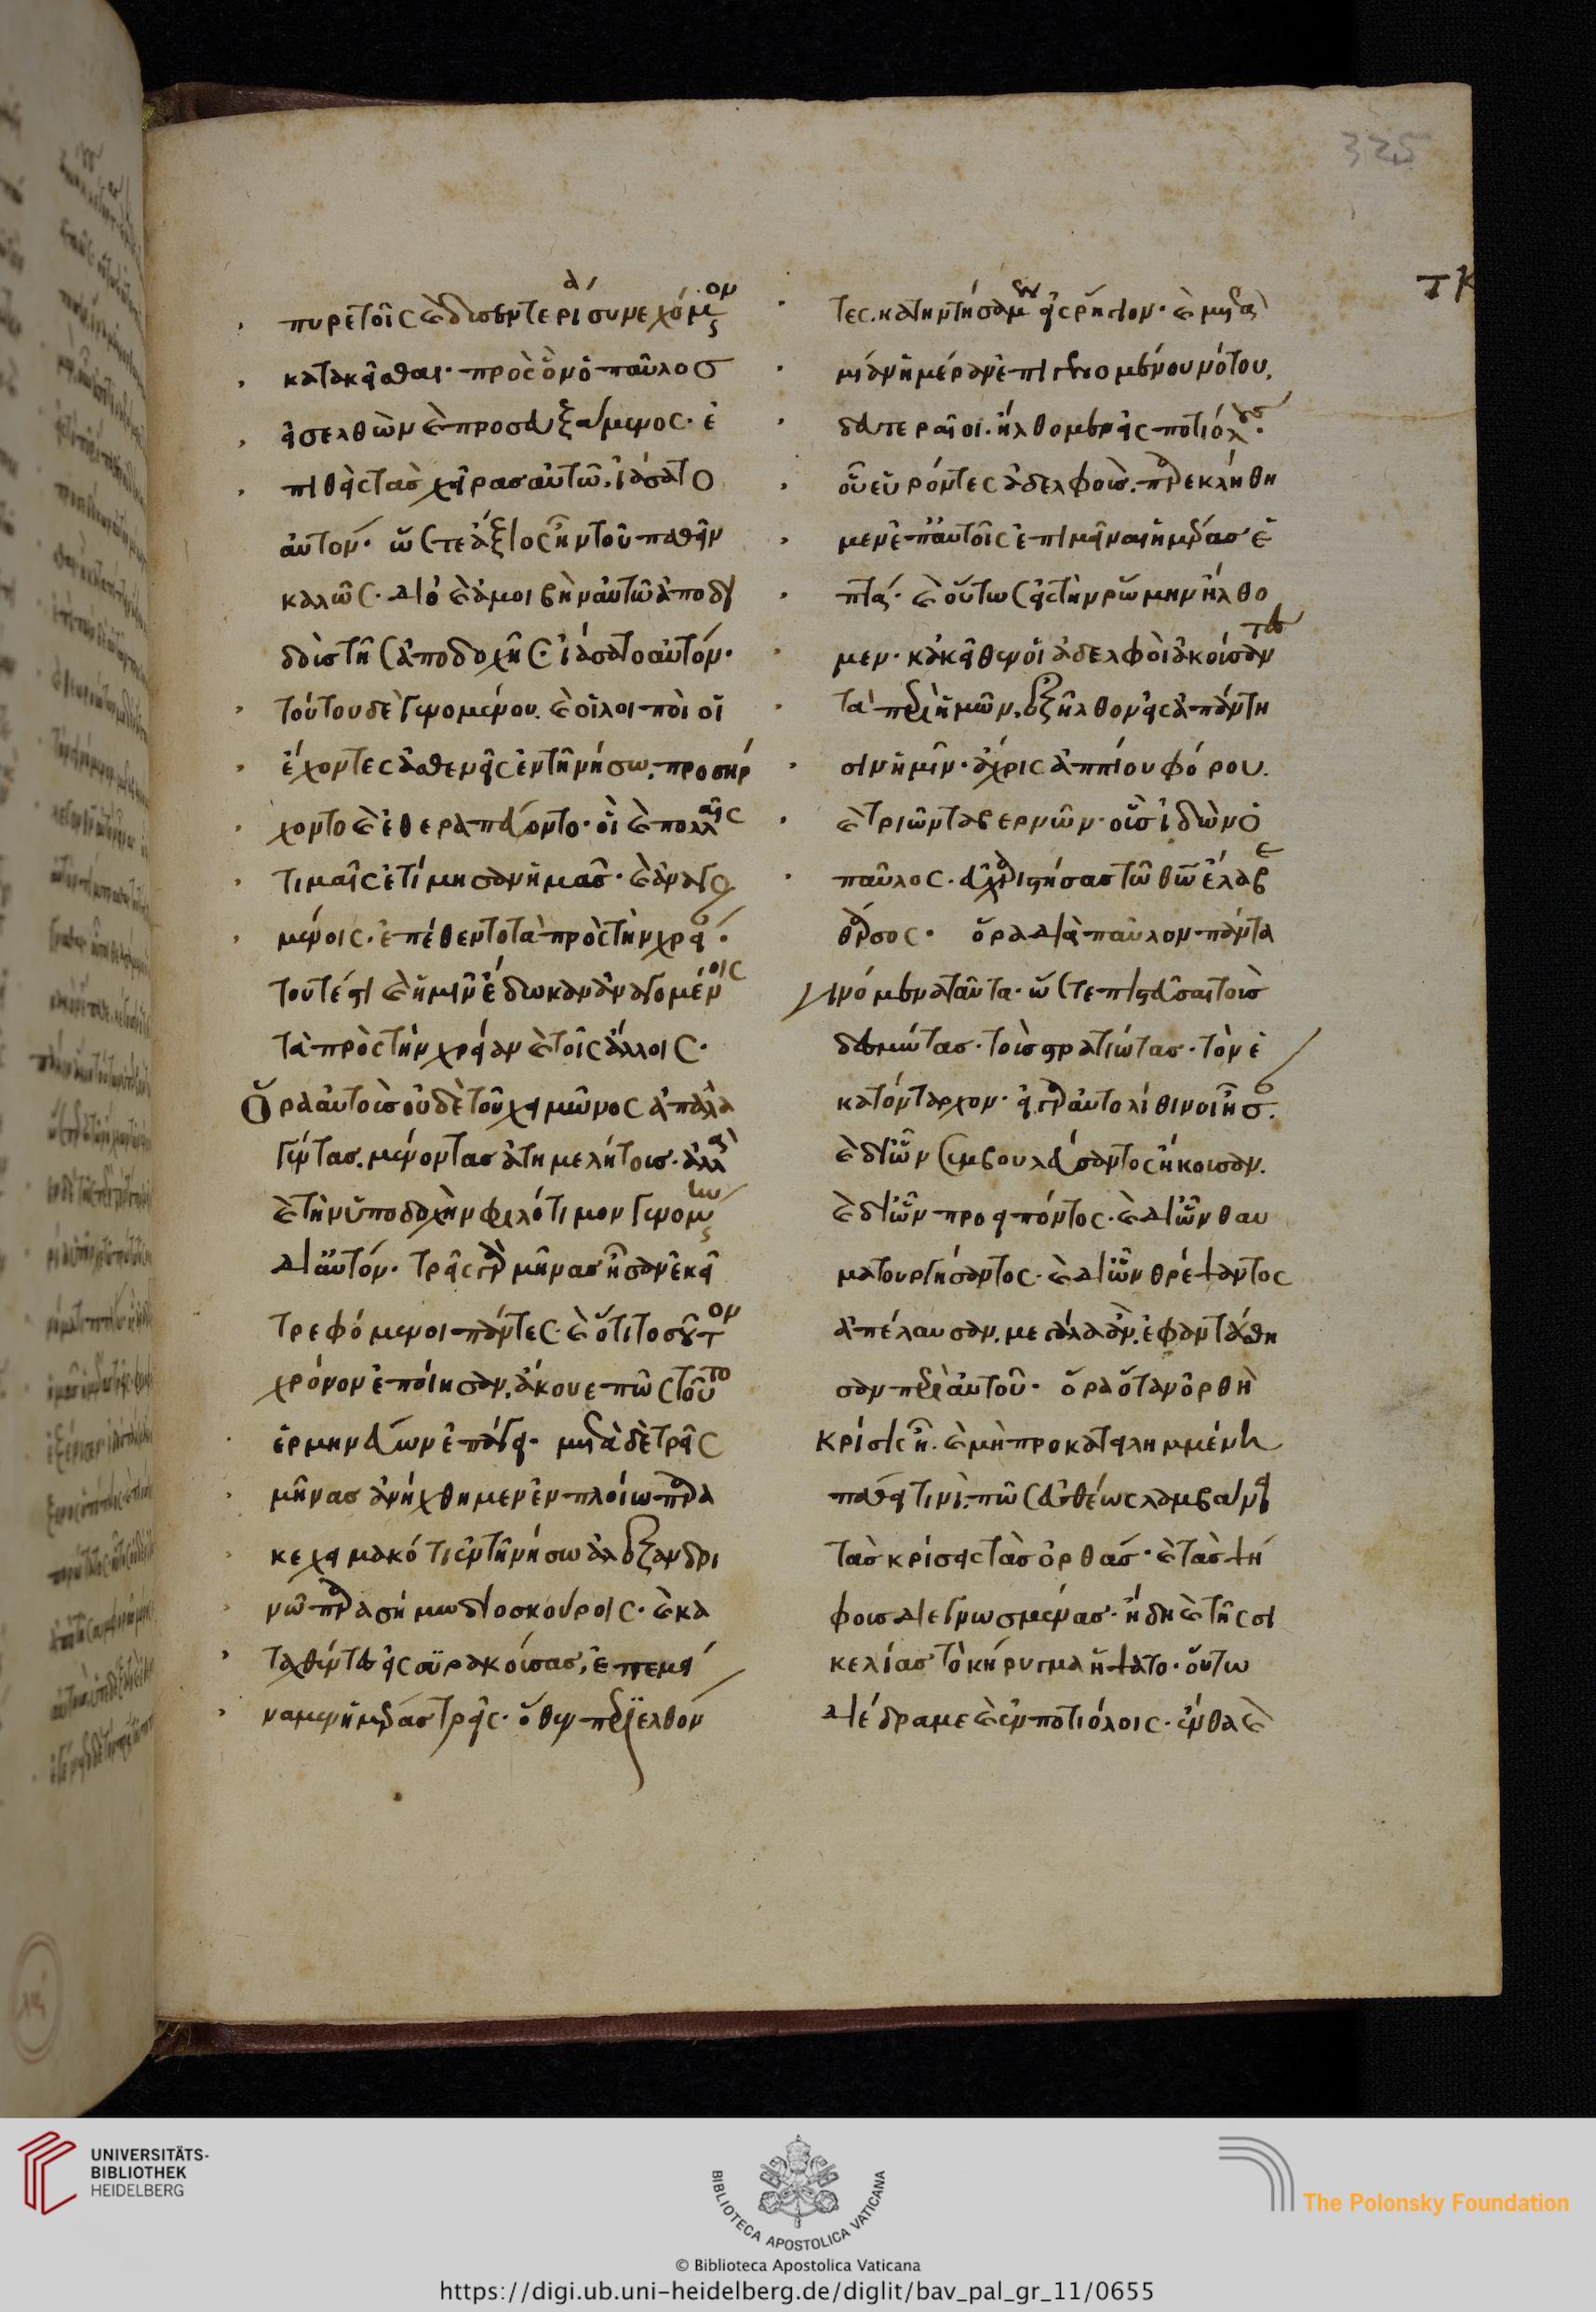 325
τκ
πυρετοῖς καὶ δυσεντερία συνεχόμενον
κατακεῖσθαι· πρὸς ὃν ὁ παῦλοσ
εἰσελθὼν καὶ προσευξάμενος· ἐ
πιθεὶς τὰσ χεῖρασ αὐτῶ, ἰάσατο
αὐτόν· ὥστε ἄξιος ἦν τοῦ παθεῖν
καλῶς· διὸ καὶ ἀμοιβὴν αὐτῶ ἀποδι
δοὺσ τῆς ἀποδοχῆς· ἰάσατο αὐτόν·
τούτου δὲ γενομένου. καὶ οἱ λοιποὶ οἱ
ἔχοντες ἀσθενείας ἐν τῆ νήσω, προσήρ
χοντο καὶ ἐθεραπεύοντο· οἳ καὶ πολλαῖς
τιμαῖς ἐτίμησαν ἡμᾶσ· καὶ ἀναγο
μένοις· ἐπέθεντο τὰ πρὸς τὴν χρείαν·
τουτέστι καὶ ἡμῖν ἔδωκαν ἀναγομένοις
τὰ πρὸς τὴν χρείαν καὶ τοῖς ἄλλοις·
Ὅρα αὐτοὺσ οὐδὲ τοῦ χειμῶνος ἀπαλλα
γέντασ. μένοντασ ἀτημελήτουσ· ἀλλὰ
καὶ τὴν ὑποδοχὴν φιλότιμον γενομένην
δι αὐτόν· τρεῖς γὰρ μῆνασ ἦσαν ἐκεῖ
τρεφόμενοι πάντες· καὶ ὅτι τοσοῦτον
χρόνον ἐποίησαν, ἄκουε πῶς τοῦτο
ἑρμηνεύων ἐπάγει· μετὰ δὲ τρεῖς
μῆνασ ἀνήχθημεν ἐν πλοίω παρα
κεχειμακότι ἐν τῆ νήσω ἀλεξανδρι
νῶ παρασήμω διοσκούροις· καὶ κα
ταχθέντες εἰς συρακούσασ, ἐπεμεί
ναμεν ἡμέρασ τρεῖς· ὅθεν περιελθόν
τες. κατηντήσαμεν εἰς ρήγιον· καὶ μετὰ
μίαν ἡμέραν ἐπιγενομένου νότου,
δευτεραῖοι. ἤλθομεν εἰς ποτιόλους·
οὗ εὑρόντες ἀδελφοὺσ. παρεκλήθη
μεν ἐπ αὐτοῖς ἐπιμεῖναι ἡμέρασ ἑ
πτά· καὶ οὕτως εἰς τὴν ρώμην ἤλθο
μεν· κἀκεῖθεν οἱ ἀδελφοὶ ἀκούσαντες
τὰ περὶ ἡμῶν, ἐξῆλθον εἰς ἀπάντη
σιν ἡμῖν· ἄχρις ἀππίου φόρου.
καὶ τριῶν ταβερνῶν· οὓσ ἰδὼν ὁ
παῦλος. εὐχαριστήσασ τῶ θω ἔλαβε
θάρσος· ὅρα διὰ παῦλον πάντα
γινόμενα ταῦτα· ὥστε πιστεῦσαι τοὺσ
δεσμώτασ· τοὺσ στρατιώτασ· τὸν ἑ
κατόνταρχον· εἰ γὰρ αὐτο λίθινοι ἦσαν.
καὶ δι ὧν συμβουλεύσαντος ἤκουσαν.
καὶ δι ὧν προειπόντος· καὶ δι ὧν θαυ
ματουργήσαντος· καὶ δι ὧν θρέψαντος
ἀπέλαυσαν. μεγάλα ἂν. ἐφαντάσθη
σαν περὶ αὐτοῦ· ὅρα ὅταν ὀρθὴ
κρίσις ῇ. καὶ μὴ προκατειλημμένη
πάθει τινὶ. πῶς εὐθέως λαμβάνει
τὰσ κρίσεις τὰσ ὀρθάσ· καὶ τὰσ ψή
φουσ διεγνωσμένασ· ἤδη καὶ τῆς σι
κελίασ τὸ κήρυγμα ἥψατο· οὕτω
διέδραμε καὶ ἐν ποτιόλοις· ἔνθα καὶ
UNIVERSITÄTS-
BIBLIOTHEK
HEIDELBERG
BIBLIOTECA APOSTOLICA VATICANA
© Biblioteca Apostolica Vaticana
The Polonsky Foundation
https://digi.ub.uni-heidelberg.de/diglit/bav_pal_gr_11/0655